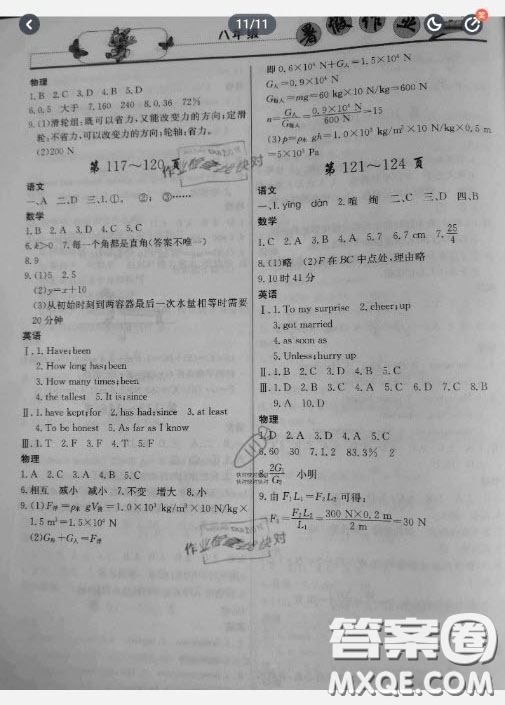 11/11
八年级
暑假作业
物理
1.B 2.C 3.D 4.B 5.D
6.0.5 大于 7.160 240 8.0.36 72%
9.(1)滑轮组:既可以省力,又能改变力的方向;定滑
轮:不省力,可以改变力的方向;轮轴:省力.
(2)200 N
第117～120页
语文
一、A 二、D 三、1.①. ②; ③……
数学
1.B 2.A 3.D 4.A 5.C
6.k>0 7.每一个角都是直角(答案不唯一)
8.9
9.(1)5 2.5
(2)y=x+10
(3)从初始时刻到两容器最后一次水量相等时需要
20分钟
英语
Ⅰ.1.Have;been
2.How long has;been
3.How many times;been
4.the tallest 5.It is;since
Ⅱ.1.have kept;for 2.has had;since 3.at least
4.To be honest 5.As far as I know
Ⅲ.1.T 2.F 3.F 4.T 5.F
物理
1.A 2.C 3.A 4.B 5.C
6.相互 减小 减小 7.不变 增大 8.小
9.(1)F浮=ρ水 gV排=1.0×10³ kg/m³×10 N/kg×
1.5 m³=1.5×10⁴ N
(2)G舟+G人=F浮
即0.6×10⁴ N+G人=1.5×10⁴ N
G人=0.9×10⁴ N
G每人=mg=60 kg×10 N/kg=600 N
n=G人/G每人=0.9×10⁴ N/600 N=15
(3)p=ρ水 gh=1.0×10³ kg/m³×10 N/kg×0.5 m
=5×10³ Pa
第121～124页
语文
一、1.yīng dàn 2.喧 绚 二、C 三、D 四、B
数学
1.C 2.D 3.B 4.A 5.7 6.7 cm 7.25/4
8.(1)略 (2)F在BC中点处,理由略
9.10时41分
英语
Ⅰ.1.To my surprise 2.cheer;up
3.got married
4.as soon as
5.Unless;hurry up
Ⅱ.1.D 2.B 3.C 4.D 5.C
Ⅲ.1.D 2.C 3.A 4.D 5.B 6.D 7.C 8.B
9.A 10.D
物理
1.D 2.A 3.A 4.A 5.C
6.60 30 7.1.2 83.3% 2
8.2G₁/G₂ 小明
9.由F₁L₁=F₂L₂可得:
F₁=F₂L₂/L₁=300 N×0.2 m/2 m=30 N
作业检查快对
作业检查快对
答案圈
MXQE.COM